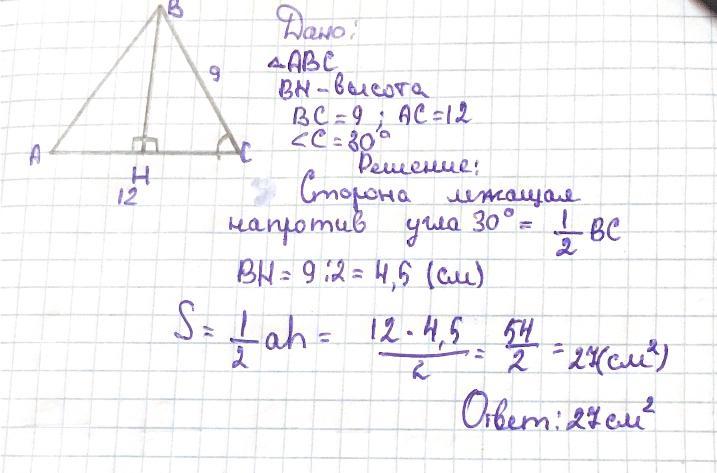 B
9
A
H
C
12
Дано:
△ABC
BH - высота
BC = 9 ; AC = 12
∠C = 30°
Решение:
Сторона лежащая
напротив угла 30° = 1/2 BC
BH = 9 : 2 = 4,5 (см)
S = 1/2 ah = 12 · 4,5 / 2 = 54/2 = 27(см²)
Ответ: 27 см²